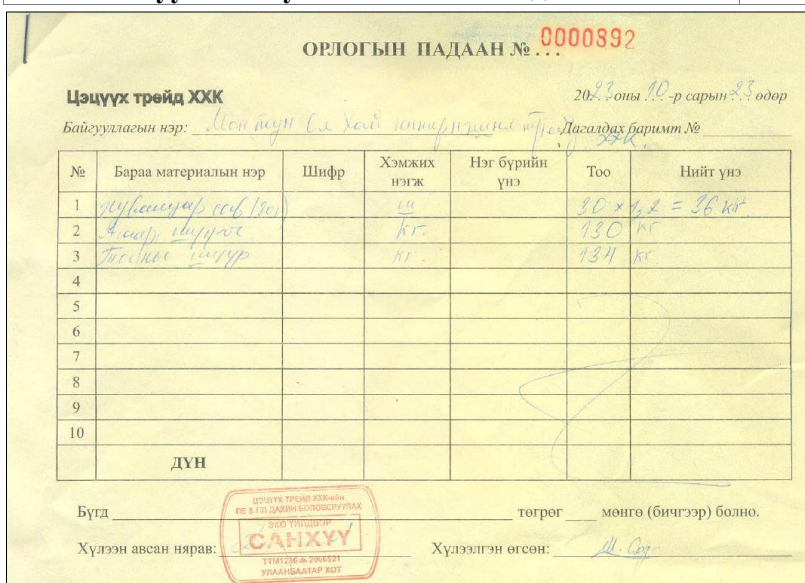 ОРЛОГЫН ПАДААН № ... 0000892
Цэцүүх трейд ХХК
2023 оны 10-р сарын 23 өдөр
Байгууллагын нэр: Дагалдах баримт №
ХХК.
№ Бараа материалын нэр Шифр Хэмжих нэгж Нэг бүрийн үнэ Тоо Нийт үнэ
1 (20л) ш 30 x 1,2 = 36 кг
2 шүүр кг. 130 кг
3 Тосны шүүр кг 134 кг
4
5
6
7
8
9
10
ДҮН
Бүгд төгрөг мөнгө (бичгээр) болно.
Хүлээн авсан нярав: Хүлээлгэн өгсөн:
ЦЭЦҮҮХ ТРЕЙД ХХК-ийн
ПЕ & ПП ДАХИН БОЛОВСРУУЛАХ
ЭКО ҮЙЛДВЭР
САНХҮҮ
УЛААНБААТАР ХОТ